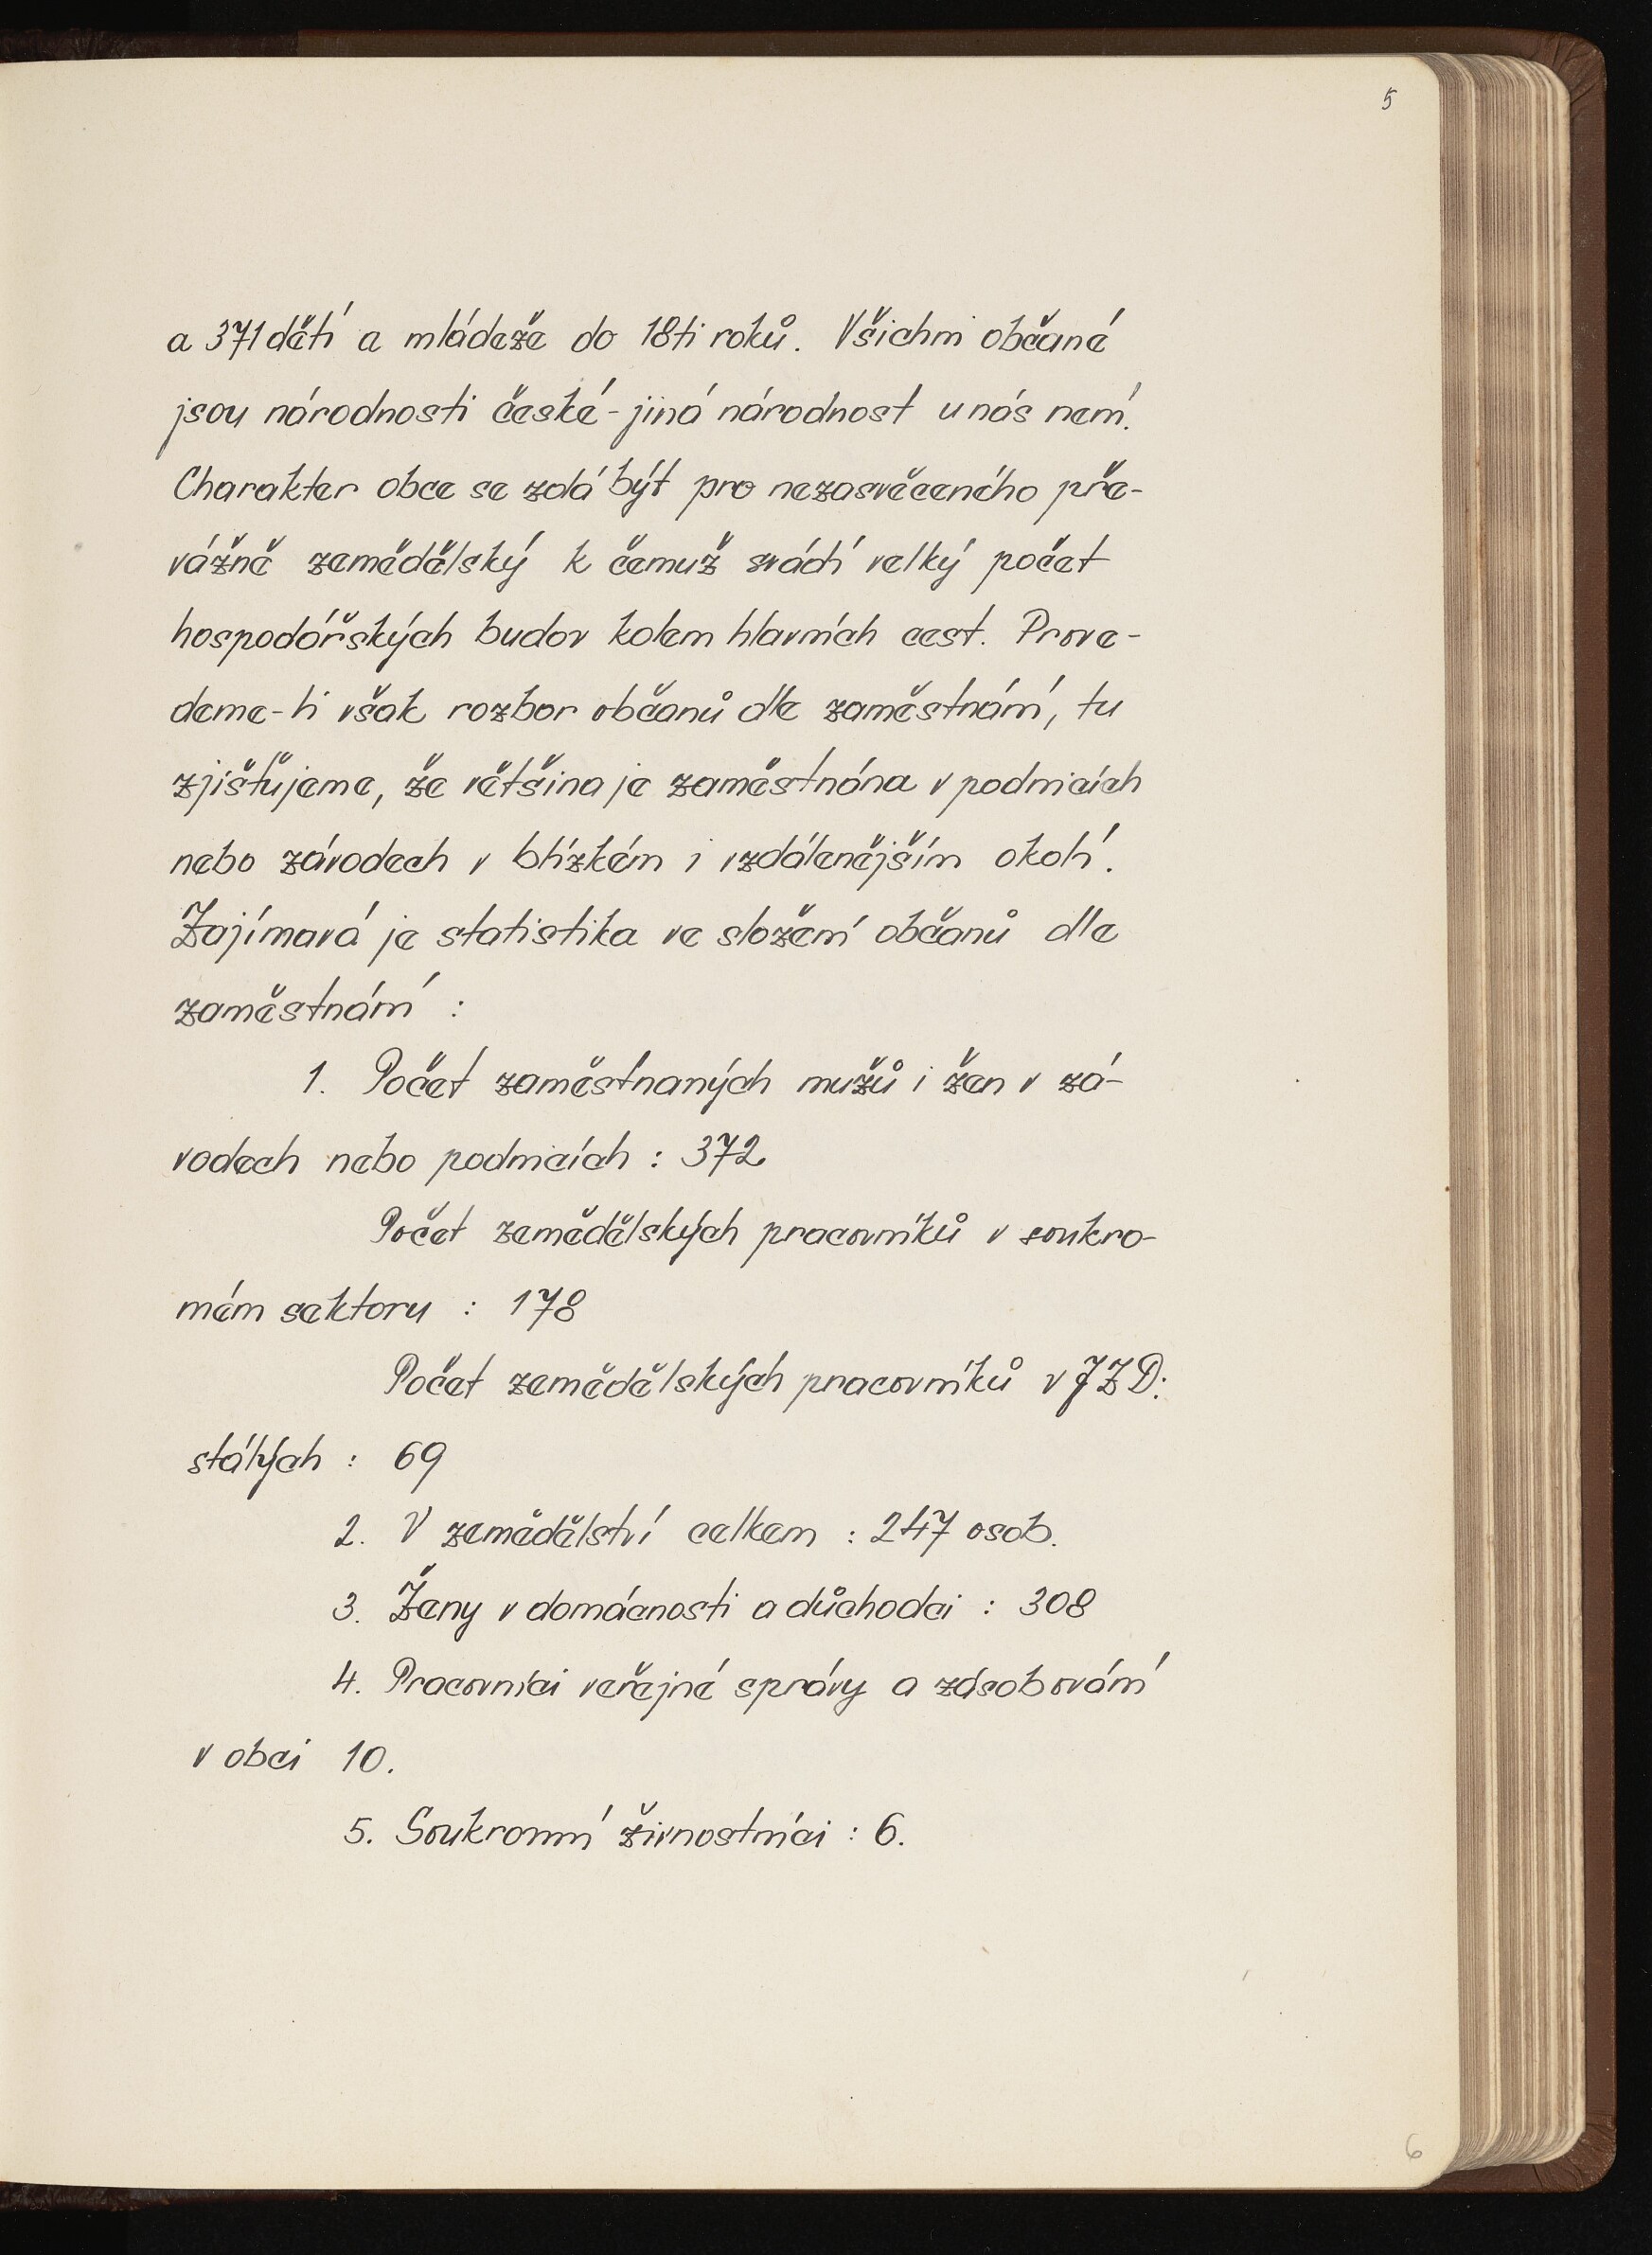 5
a 371 dětí a mládeže do 18ti roků. Všichni občané
jsou národnosti české - jiná národnost u nás není.
Charakter obce se zdá být pro nezasvěceného pře-
vážně zemědělský k čemuž svádí velký počet
hospodářských budov kolem hlavních cest. Prove-
deme-li však rozbor občanů dle zaměstnání, tu
zjišťujeme, že většina je zaměstnána v podnicích
nebo závodech v blízkém i vzdálenějším okolí.
Zajímavá je statistika ve složení občanů dle
zaměstnání :
1. Počet zaměstnaných mužů i žen v zá-
vodech nebo podnicích : 372
Počet zemědělských pracovníků v soukro-
mém sektoru : 178
Počet zemědělských pracovníků v JZD:
stálých : 69
2. V zemědělství celkem : 247 osob.
3. Ženy v domácnosti a důchodci : 308
4. Pracovníci veřejné správy a zásobování
v obci 10.
5. Soukromní živnostníci : 6.
6